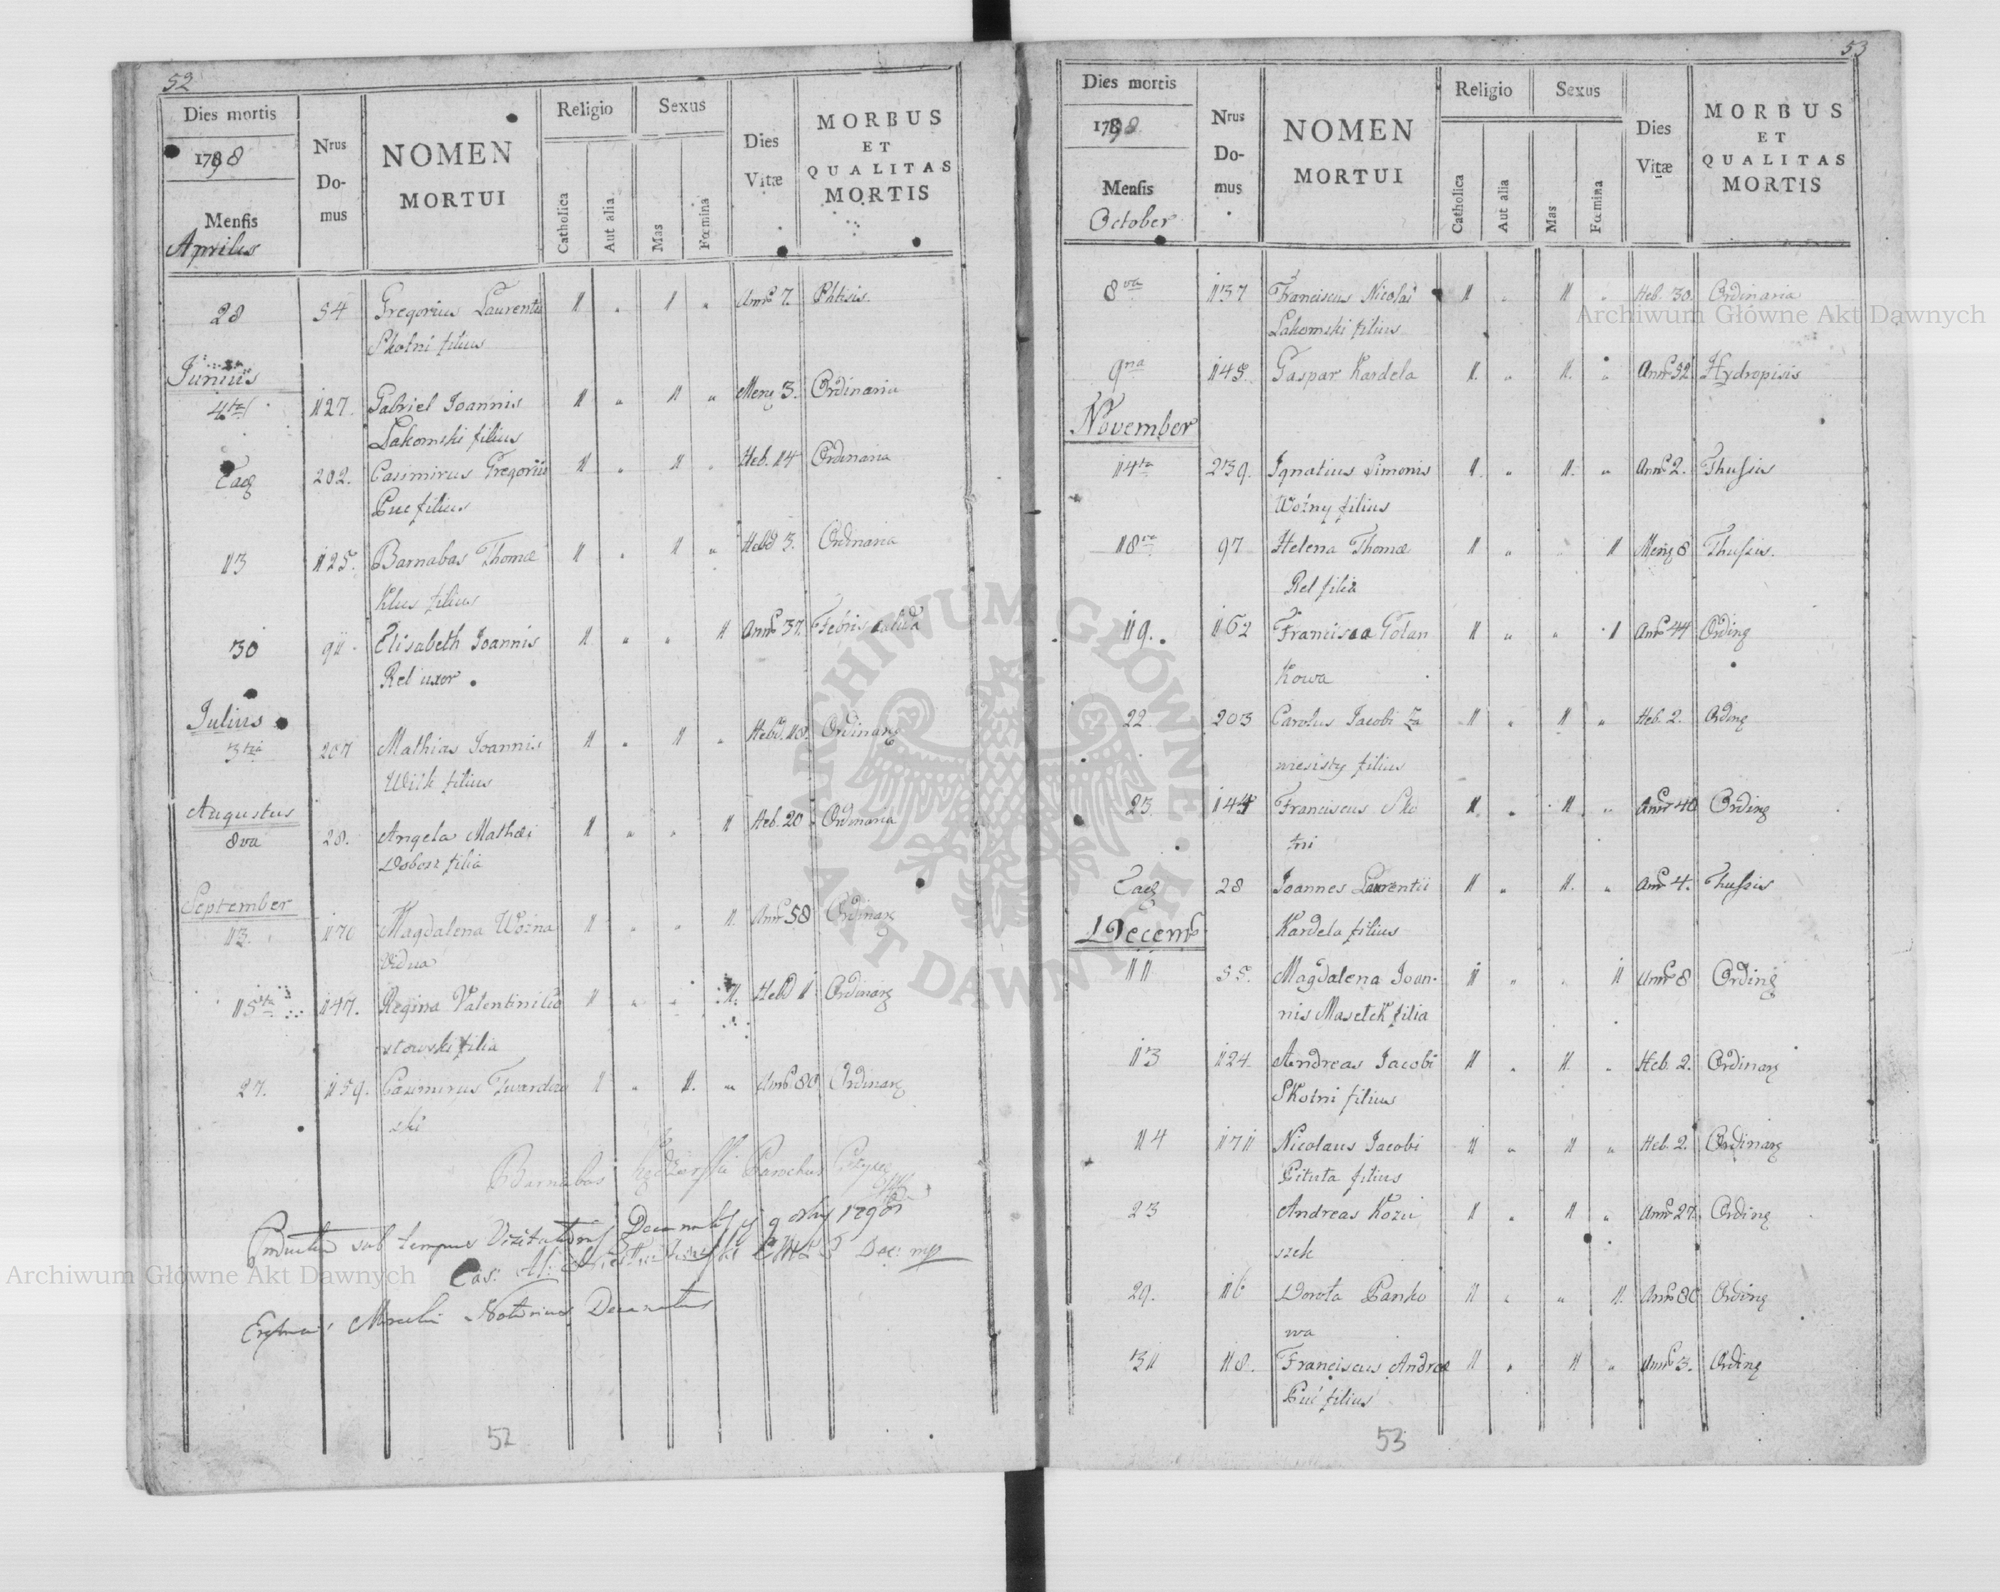 52
Dies mortis
1798
Mensis
Aprilis
Nrus
Do-
mus
NOMEN
MORTUI
Religio
Catholica
Aut alia
Sexus
Mas
Fœmina
Dies
Vitæ
MORBUS
ET
QUALITAS
MORTIS
28 54 Gregorius Laurentii 1 „ 1 „ Ann 7. Phtisis.
Skotni filius
Junius
4ta 127. Gabriel Joannis 1 „ 1 „ Mens 3. Ordinaria
Lakomski filius
Eadg 202. Casimirus Gregorii 1 „ 1 „ Heb. 14 Ordinaria
Puc filius
13 125. Barnabas Thomæ 1 „ 1 „ Hebd 3. Ordinaria
Klus filius
30 91 Elisabeth Joannis 1 „ „ 1 Ann 37. Febris calida
Rel uxor
Julius
3tia 207 Mathias Joannis 1 „ 1 „ Hebd. 18. Ordinarg
Wilk filius
Augustus
8va 28. Angela Mathæi 1 „ „ 1 Heb. 20 Ordinaria
Dobosz filia
September
13. 170 Magdalena Wozna 1 „ „ 1. Ann 58 Ordinarg
Vidua
15ta 147. Regina Valentini 1 „ „ 1. Hebd 1 Ordinarg
stowski filia
27. 159. Casimirus Twardow 1 „ 1. „ Ann 80 Ordinarg
ski
Barnabas Parochus
Productus sub tempus Visitationis Decanalis 9 1798
Cas: Dec: mp
Notarius Decanatus
52
53
Dies mortis
1798
Mensis
October
Nrus
Do-
mus
NOMEN
MORTUI
Religio
Catholica
Aut alia
Sexus
Mas
Fœmina
Dies
Vitæ
MORBUS
ET
QUALITAS
MORTIS
8va 137 Franciscus Nicolai 1 „ 1 „ Heb. 30. Ordinaria
Lakomski filius
9na 145. Gaspar Kardela 1. „ 1. „ Ann 52 Hydropisis
November
14ta 239. Ignatius Simonis 1. „ 1. „ Ann 2. Thussis
Wozny filius
18va 97 Helena Thomæ 1 „ „ 1 Mens 8 Thussis.
Rel filia
19. 162 Francisca Golan 1 „ „ 1 Ann 44 Ording
kowa
22 203 Carolus Jacobi Za 1 „ 1 „ Heb. 2. Ording
wiesisty filius
23 144 Franciscus Sko 1. „ 1 „ Ann 40 Ording
tni
Eadg 28 Joannes Laurentii 1 „ 1. „ Ann 4. Thussis
Kardela filius
Decemb
11 55. Magdalena Joan- 1 „ „ 1 Ann 8 Ording
nis Maselek filia
13 124. Andreas Jacobi 1 „ 1. „ Heb. 2. Ordinarg
Skotni filius
14 171 Nicolaus Jacobi 1 „ 1 „ Heb. 2. Ordinarg
Pituta filius
23 Andreas Kozu 1 „ 1 „ Ann 27. Ording
szek
29. 16 Dorota Panko 1 „ „ 1. Ann 80 Ording
wa
31 118. Franciscus Andreæ 1 „ 1 „ Ann 3. Ording
Puć filius
53
Archiwum Główne Akt Dawnych
Archiwum Główne Akt Dawnych
ARCHIWUM GŁÓWNE · AKT DAWNYCH ·